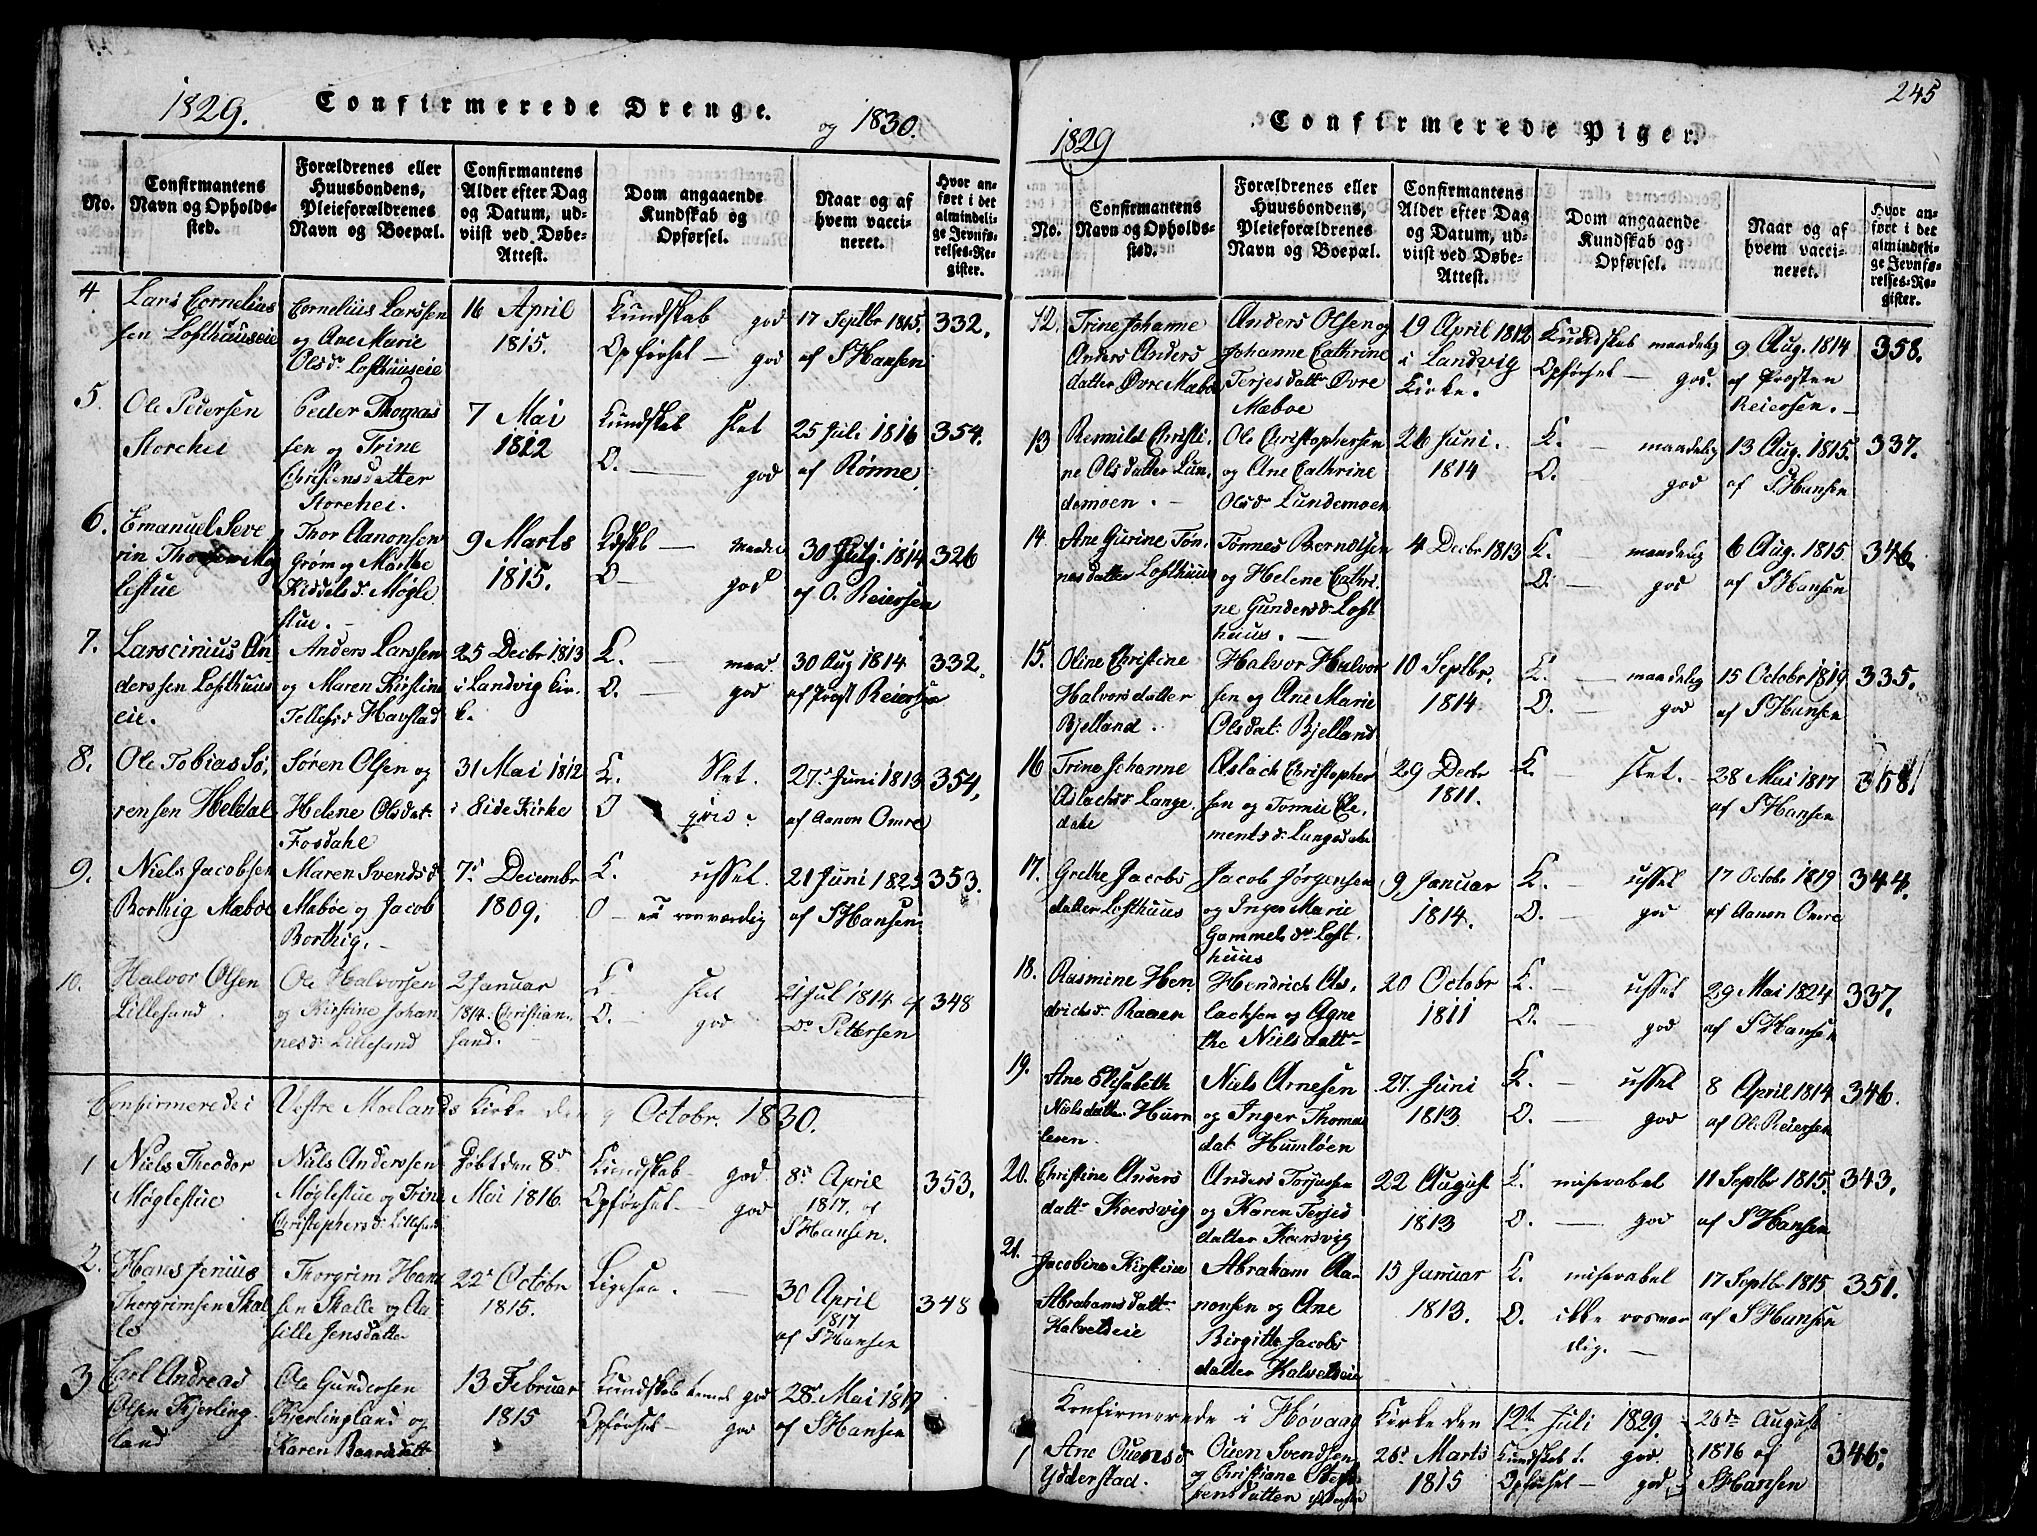 1829. Confirmerede Drenge. og 1830.
No.
Confirmantens
Navn og Opholds-
sted.
Forældrenes eller
Huusbondens,
Pleieforældrenes
Navn og Boepæl.
Confirmantens
Alder efter Dag
og Datum, ud-
viist ved Døbe-
Attest.
Dom angaaende
Kundskab og
Opførsel.
Naar og af
hvem vacci-
neret.
Hvor an-
ført i det
almindeli-
ge Jevnfø-
relses-Re-
gister.
4.
Lars Cornelius
sen Lofthuuseie
Cornelius Larssen
og Ane Marie
Olsdr. Lofthuuseie
16 April
1815.
Kundskab god
Opførsel — god
17 Septbr 1815.
af SHansen
332.
5.
Ole Pedersen
Storehei
Peder Thomas
sen og Trine
Christensdatter
Storehei.
7 Mai
1812
Kundskab slet
O. — god
25 Juli 1816
af Rønne
354.
6.
Emanuel Seve
rin Mø
lestue
Thor Aanonsen
Grøm og Marthe
Kiddelsd. Møgle
stue. —
9 Marts
1815.
Kdskb — maade
O — god
30 July. 1814
af O. Reiersen
326
7.
Larscinius An-
derssen Lofthuus
eie.
Anders Larssen
og Maren Kirstine
Tellefsd. Havstad
25 Decbr 1813
i Landvig Kir-
k.
K. — maad
O. — god
30 Aug 1814
af Prost Reiersen
332.
8.
Ole Tobias Sø,
rensen Heldal
Søren Olsen og
Helene Olsdat.
Fosdahl
31 Mai 1812
i Eide Kirke
K. Slet.
O
27. Juni 1813
af Aanon Omre
354,
9.
Niels Jacobsen
Borthig Mæbøe
Maren Svendsd
Mæbøe og Jacob
Borthig.
7. Decembr
1809.
K. usset.
O — roesværdig
21 Juni 1825
af SHansen
353.
10.
Halvor Olsen
Lillesand
Ole Halvorsen
og Kirstine Johan
nesd. Lillesand
2 Januar
1814. Christian-
sand.
K. slet
O. god
21 Jul 1814 af
Dr Pettersen
348
Confirmerede i Vestre Moelands Kirke den Octobr. 1830.
1
Niels Theodor
Møglestue
Niels Anderssen
Møglestue og Trine
Christophersd. Lillesand
Døbt den 8d
Mai 1816.
Kundskab god
Opførsel — god
8d April
1817. af
SHansen.
353.
2.
Hans Jenius
Thorgrimsen Skal
le
Thorgrim Han
sen Skalle og Aa-
sille Jensdatter
22d Octobr
1815.
Ligesaa. —
30 April
1817
af SHansen
348
3
Carl Andreas
Olsen Kjerling
land
Ole Gundersen
Kjerlingland og
Karen Baardsdatt
13 Februar
1815
Kundskab temel god
Opførsel — god
28d Mai 1817
af SHansen
245
1829 Confirmerede Piger.
No.
Confirmantens
Navn og Opholds-
sted.
Forældrenes eller
Huusbondens,
Pleieforældrenes
Navn og Boepæl.
Confirmantens
Alder efter Dag
og Datum, ud-
viist ved Døbe-
Attest.
Dom angaaende
Kundskab og
Opførsel.
Naar og af
hvem vacci-
neret.
Hvor an-
ført i det
almindeli-
ge Jevnfø-
relses-Re-
gister.
12.
Trine Johanne
Anders Anders
datter Øvre Mæbøe
Anders Olsen og
Johanne Cathrine
Terjesdattr Øvre
Mæbøe
19 April 1812
i Landvig
Kirke.
Kundskab maadelig
Opførsel — god.
9 Aug. 1814
af Prosten
Reiersen. —
358.
13
Rennild Christi-
ne Olsdatter Lun-
demoen. —
Ole Christophersen
og Ane Cathrine
Olsdr Lundemoen
26 Juni.
1814
K. — maadelig
O. — god
13 Aug. 1815.
af S.Hansen
337.
14
Ane Gurine Tøn-
nesdatter Lofthuus
Tønnes Berndtsen
og Helene Cathri-
ne Gundersdr Loft
huus. —
4 Decbr 1813
K. — maadelig
O. — god
6 Aug. 1815
af SHansen
346.
15.
Oline Christine
Halvorsdatter
Bjelland.
Halvor Halvor
sen og Ane Marie
Olsdat. Bjelland
10 Septbr.
1814.
K. — maadelig
O. — god
15 Octobr 1819
af SHansen
335.
16
Trine Johanne
Aslachsdr Lange,
dahl
Aslach Christopher
sen og Tonnie Cle
mentsdr Langedahl
29 Decbr
1811.
K. slet.
28 Mai 1817
af SHansen
17.
Grethe Jacobs
datter Lofthuus
Jacob Jørgensen
og Inger Marie
Gammelsdr Loft
huus
9 Januar
1814.
K. — usset
O. — god
17 Octobr 1819
af Aanon Omre
344.
18.
Rasmine Hen
drichsd. Raaen
Hendrich As,
lachsen og Agne
the Nielsdatt
20 Octobr
1811
K. — usset
O. — god
29 Mai 1824
af SHansen
337.
19.
Ane Elisabeth
Nielsdatter Hum
løen.
Niels Arnesen
og Inger Thomas
dat Humløen
27. Juni
1813
K. — usset
O. — god
8 April 1814
af Ol. Reiersen
346.
20.
Christine Anders
datt Koersvig
Anders Torjussen
og Karen Terjes
datter Koersvig
22 August
1813
K. miserabel
O. — god
11 Septbr 1815.
af SHansen
343.
21.
Jacobine Kirstine
Abrahamsdatt
Kalveheie
Abraham Aa-
nonsen og Ane
Birgitte Jacobs
datter
15 Januar
1813.
K. miserabel
O. ikke rosvær
dig. —
17 Septbr 1815
af SHansen
351.
Konfirmerede i Høvaag Kirke den 12te Juli 1829.
1
Ane Ouensd
Ydderstad.
Ouen Svendsen
og Christiane
sensdatter
26d Marts
1815
Kundskab t. god.
Opførsel — god
26de August
1816 af
SHansen
346.